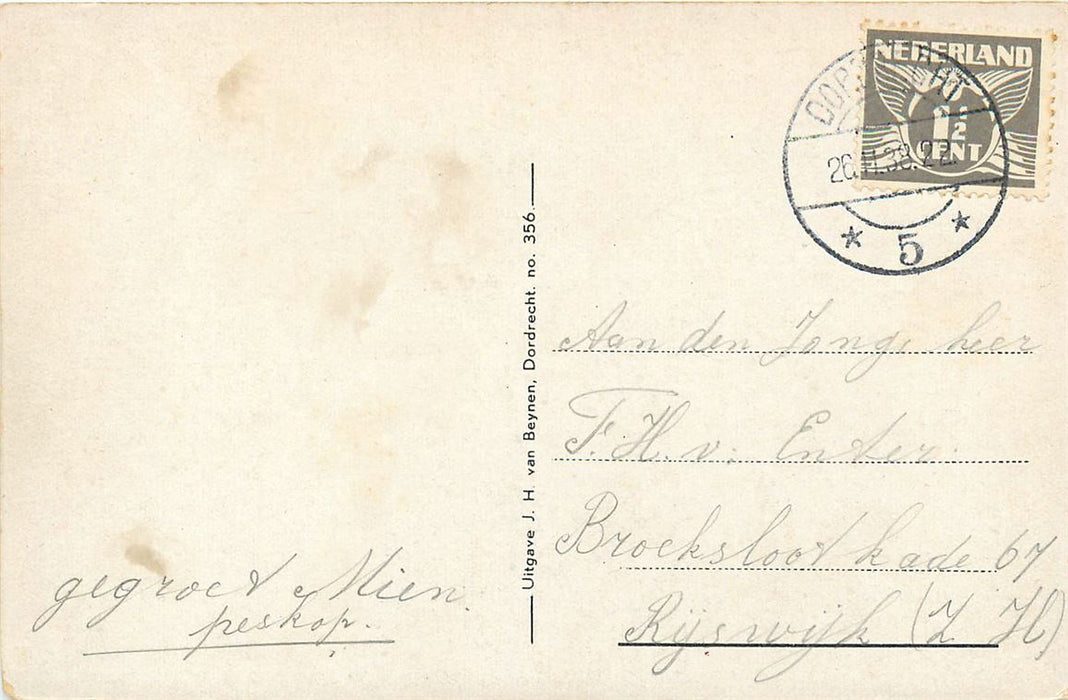 NEDERLAND
1½
CENT
DORDRECHT
26.11.38.22
* 5 *
Uitgave J. H. van Beynen, Dordrecht. no. 356.
Aan den Jonge heer
F. H. v. Enter.
Broeksloot kade 67
Rijswijk (Z H)
gegroet Mien.
peskop.